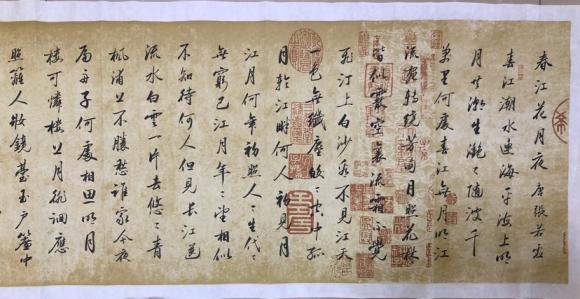 春江花月夜 唐張若虛
春江潮水連海平海上明
月共潮生灩〻隨波千
萬里何處春江無月明江
流宛轉繞芳甸月照花林
皆似霰空裏流霜不覺
飛汀上白沙看不見江天
一色無纖塵皎〻空中孤
月輪江畔何人初見月
江月何年初照人〻生代〻
無窮已江月年〻望相似
不知待何人但見長江送
流水白雲一片去悠〻青
楓浦上不勝愁誰家今夜
扁舟子何處相思明月
樓可憐樓上月徘徊應
照離人妝鏡臺玉戶簾中